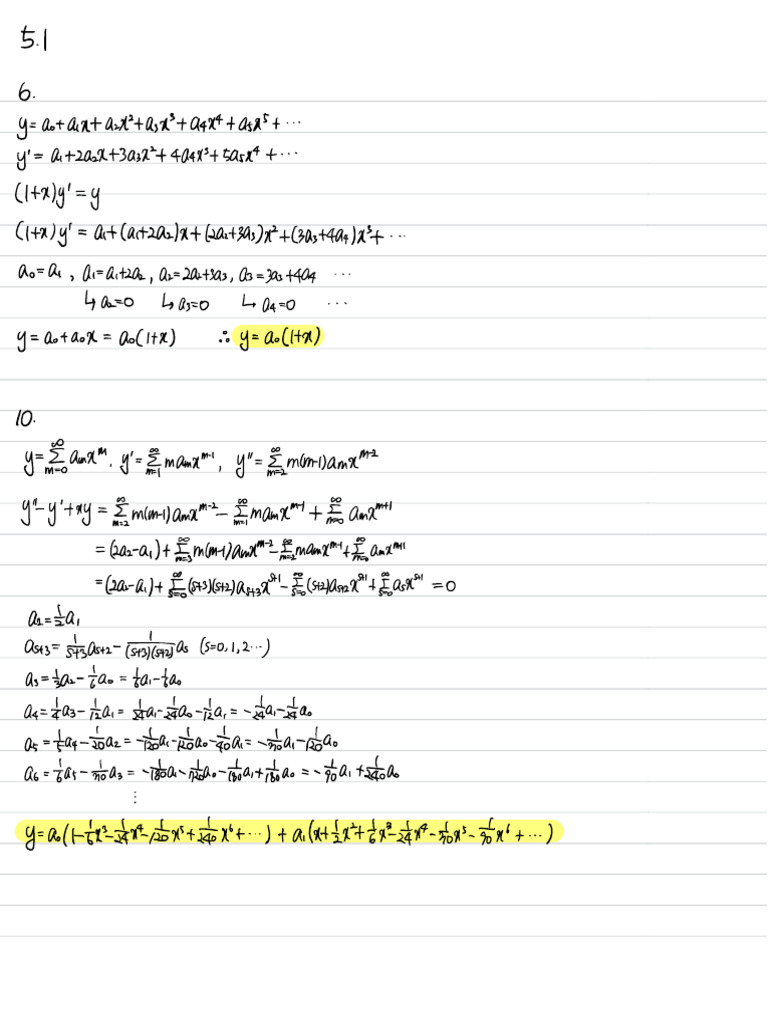 5.1
6.
y = a₀ + a₁x + a₂x² + a₃x³ + a₄x⁴ + a₅x⁵ + ⋯
y' = a₁ + 2a₂x + 3a₃x² + 4a₄x³ + 5a₅x⁴ + ⋯
(1+x)y' = y
(1+x)y' = a₁ + (a₁+2a₂)x + (2a₂+3a₃)x² + (3a₃+4a₄)x³ + ⋯
a₀=a₁, a₁=a₁+2a₂, a₂=2a₂+3a₃, a₃=3a₃+4a₄ ⋯
↳ a₂=0 ↳ a₃=0 ↳ a₄=0 ⋯
y = a₀+a₀x = a₀(1+x) ∴ y = a₀(1+x)
10.
y = ∑_{m=0}^{∞} aₘx^m, y' = ∑_{m=1}^{∞} maₘx^{m-1}, y'' = ∑_{m=2}^{∞} m(m-1)aₘx^{m-2}
y''-y'+xy = ∑_{m=2}^{∞} m(m-1)aₘx^{m-2} - ∑_{m=1}^{∞} maₘx^{m-1} + ∑_{m=0}^{∞} aₘx^{m+1}
= (2a₂-a₁) + ∑_{m=3}^{∞} m(m-1)aₘx^{m-2} - ∑_{m=2}^{∞} maₘx^{m-1} + ∑_{m=0}^{∞} aₘx^{m+1}
= (2a₂-a₁) + ∑_{s=0}^{∞} (s+3)(s+2)a_{s+3}x^{s+1} - ∑_{s=0}^{∞} (s+2)a_{s+2}x^{s+1} + ∑_{s=0}^{∞} a_s x^{s+1} = 0
a₂ = 1/2 a₁
a_{s+3} = 1/(s+3) a_{s+2} - 1/((s+3)(s+2)) a_s (s=0, 1, 2 ⋯)
a₃ = 1/3 a₂ - 1/6 a₀ = 1/6 a₁ - 1/6 a₀
a₄ = 1/4 a₃ - 1/12 a₁ = 1/24 a₁ - 1/24 a₀ - 1/12 a₁ = -1/24 a₁ - 1/24 a₀
a₅ = 1/5 a₄ - 1/20 a₂ = -1/120 a₁ - 1/120 a₀ - 1/40 a₁ = -1/30 a₁ - 1/120 a₀
a₆ = 1/6 a₅ - 1/30 a₃ = -1/180 a₁ - 1/720 a₀ - 1/180 a₁ + 1/180 a₀ = -1/90 a₁ + 1/240 a₀
⋮
y = a₀(1 - 1/6 x³ - 1/24 x⁴ - 1/120 x⁵ + 1/240 x⁶ + ⋯) + a₁(x + 1/2 x² + 1/6 x³ - 1/24 x⁴ - 1/30 x⁵ - 1/90 x⁶ + ⋯)